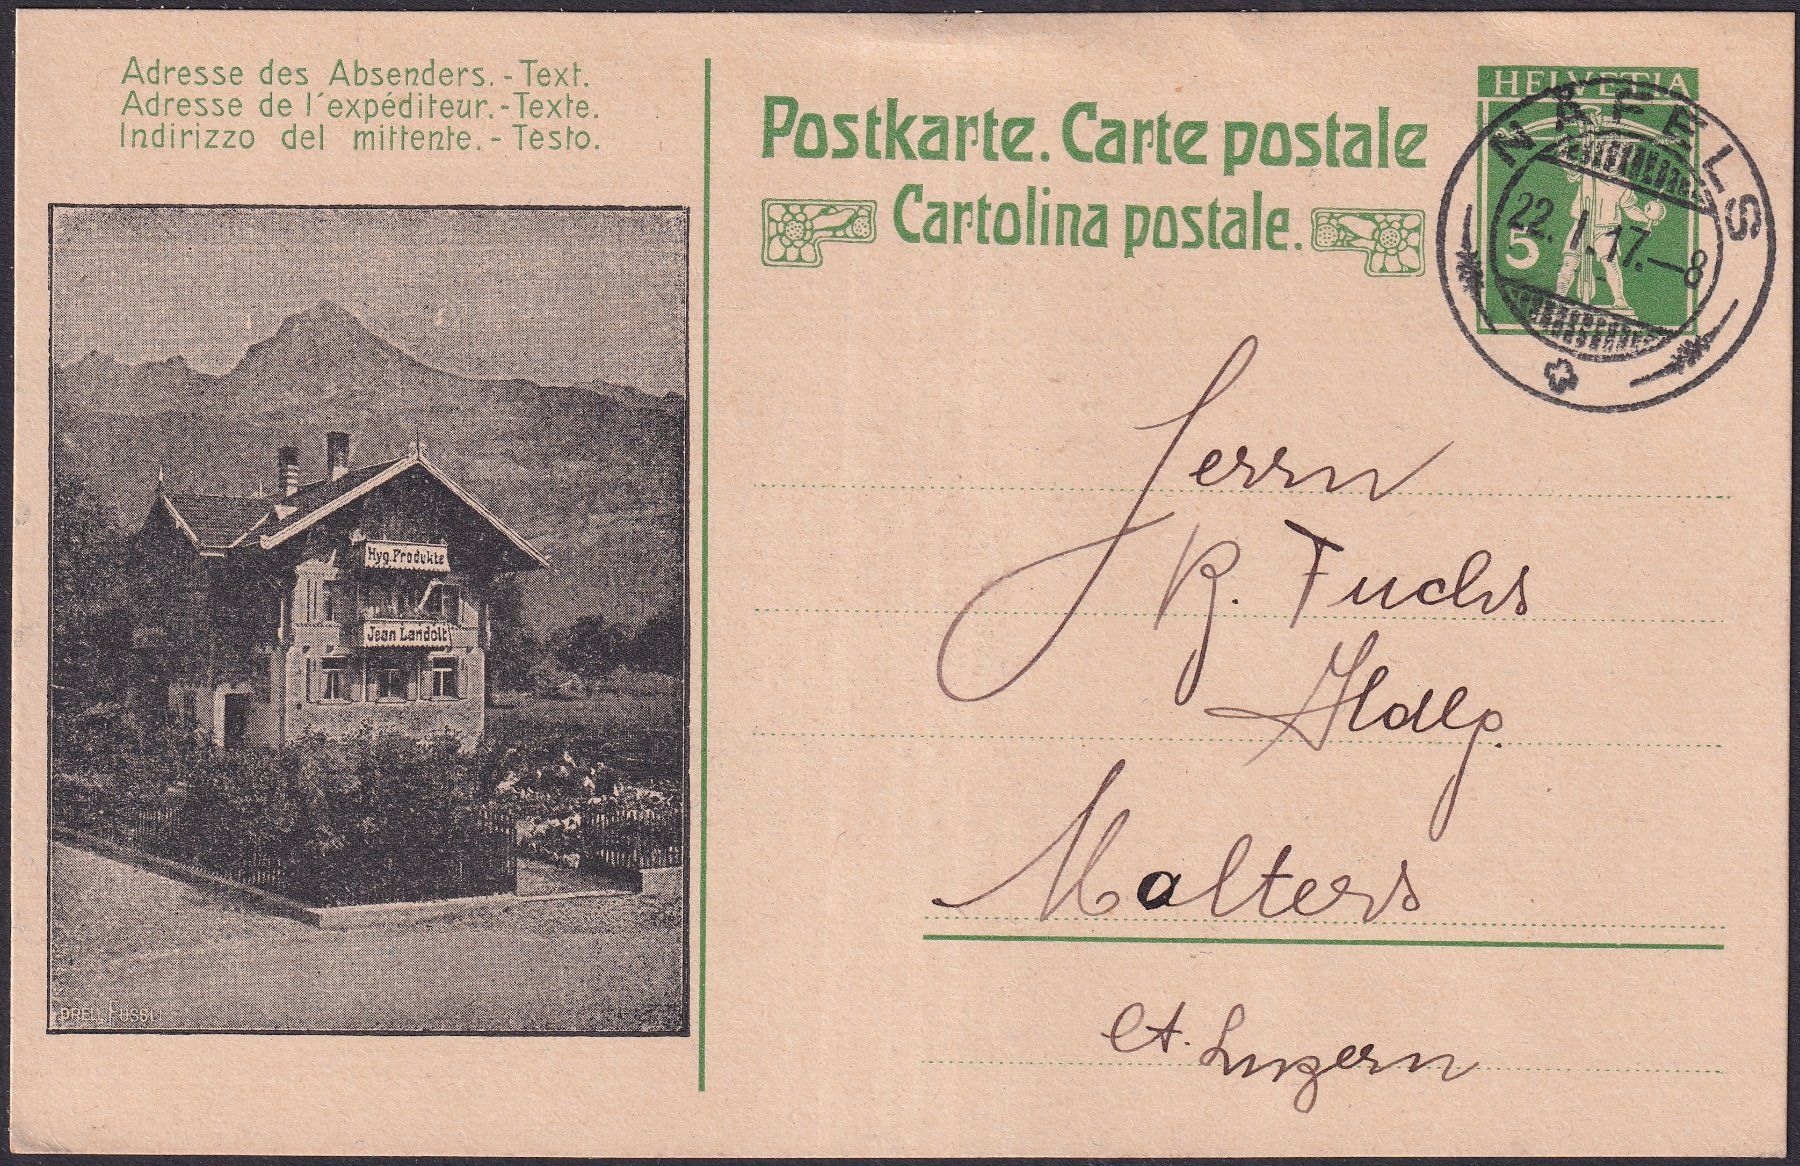 Adresse des Absenders. - Text.
Adresse de l'expéditeur. - Texte.
Indirizzo del mittente. - Testo.
Postkarte. Carte postale
Cartolina postale.
HELVETIA
5
NÄFELS
22. I. 17. — 8
Hyg. Produkte
Jean Landolt
ORELL FÜSSLI
Herrn
R. Fuchs
Hdlg.
Malters
Ct. Luzern